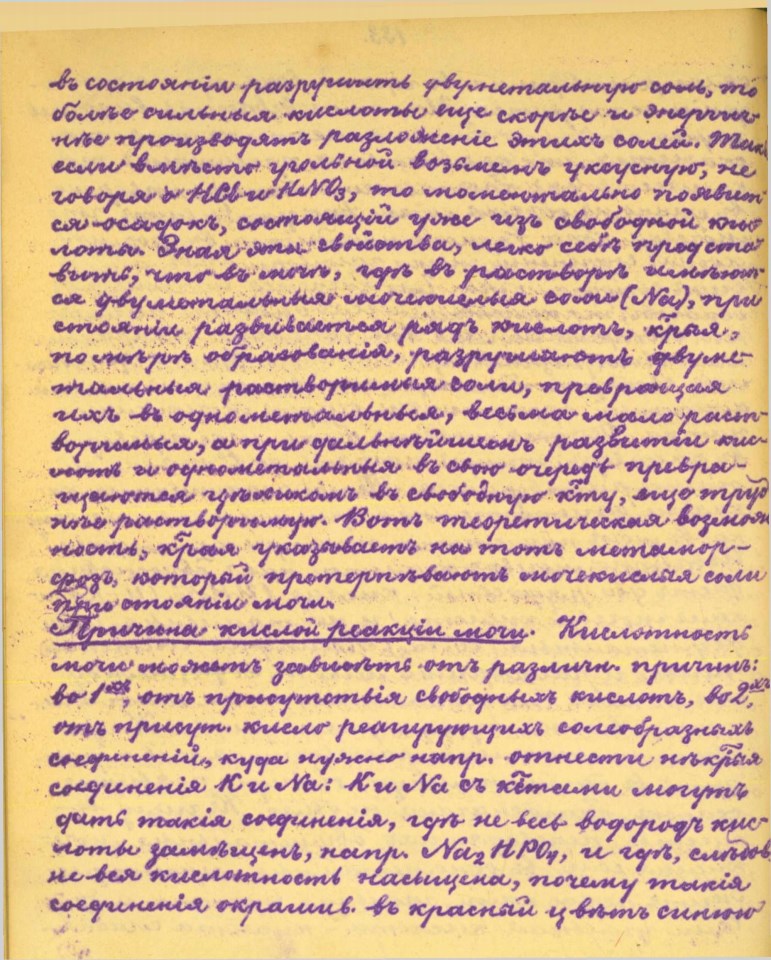 въ состоянiи разрушить двуметальную соль, то
болѣе сильныя кислоты еще скорѣе и энергич
нѣе производятъ разложенiе этихъ солей. Такъ
если вмѣсто угольной возьмемъ уксусную, не
говоря о HCl и HNO3, то моментально появит
ся осадокъ, состоящiй уже изъ свободной кис
лоты. Зная эти свойства, легко себѣ предста
вить, что въ мочѣ, гдѣ въ растворѣ имѣют
ся двуметальныя мочекислыя соли (Na), при
стоянiи развивается рядъ кислотъ, к̅рыя,
по мѣрѣ образованiя, разрушаютъ двуме-
тальныя растворимыя соли, превращая
ихъ въ однометальныя, весьма мало раст-
воримыя, а при дальнѣйшемъ развитiи кис-
лотъ и однометальныя въ свою очередь превра-
щаются цѣликомъ въ свободную к̅ту, еще труд
нѣе растворимую. Вотъ теоретическая возмож
ность, к̅рая указываетъ на тотъ метамор-
фозъ, который претерпѣваютъ мочекислыя соли
при стоянiи мочи.
Причина кислой реакцiи мочи. Кислотность
мочи можетъ зависѣть отъ различн. причинъ:
во 1хъ, отъ присутствiя свободныхъ кислотъ, во 2хъ,
отъ присут. кисло реагирующихъ солеобразныхъ
соединенiй, куда нужно напр. отнести нѣк̅рыя
соединенiя K и Na: K и Na съ к̅тами могутъ
дать такiя соединенiя, гдѣ не весь водородъ кис-
лоты замѣщенъ, напр. Na2HPO4, и гдѣ, слѣдов,
не вся кислотность насыщена, почему такiя
соединенiя окрашив. въ красный цвѣтъ синюю